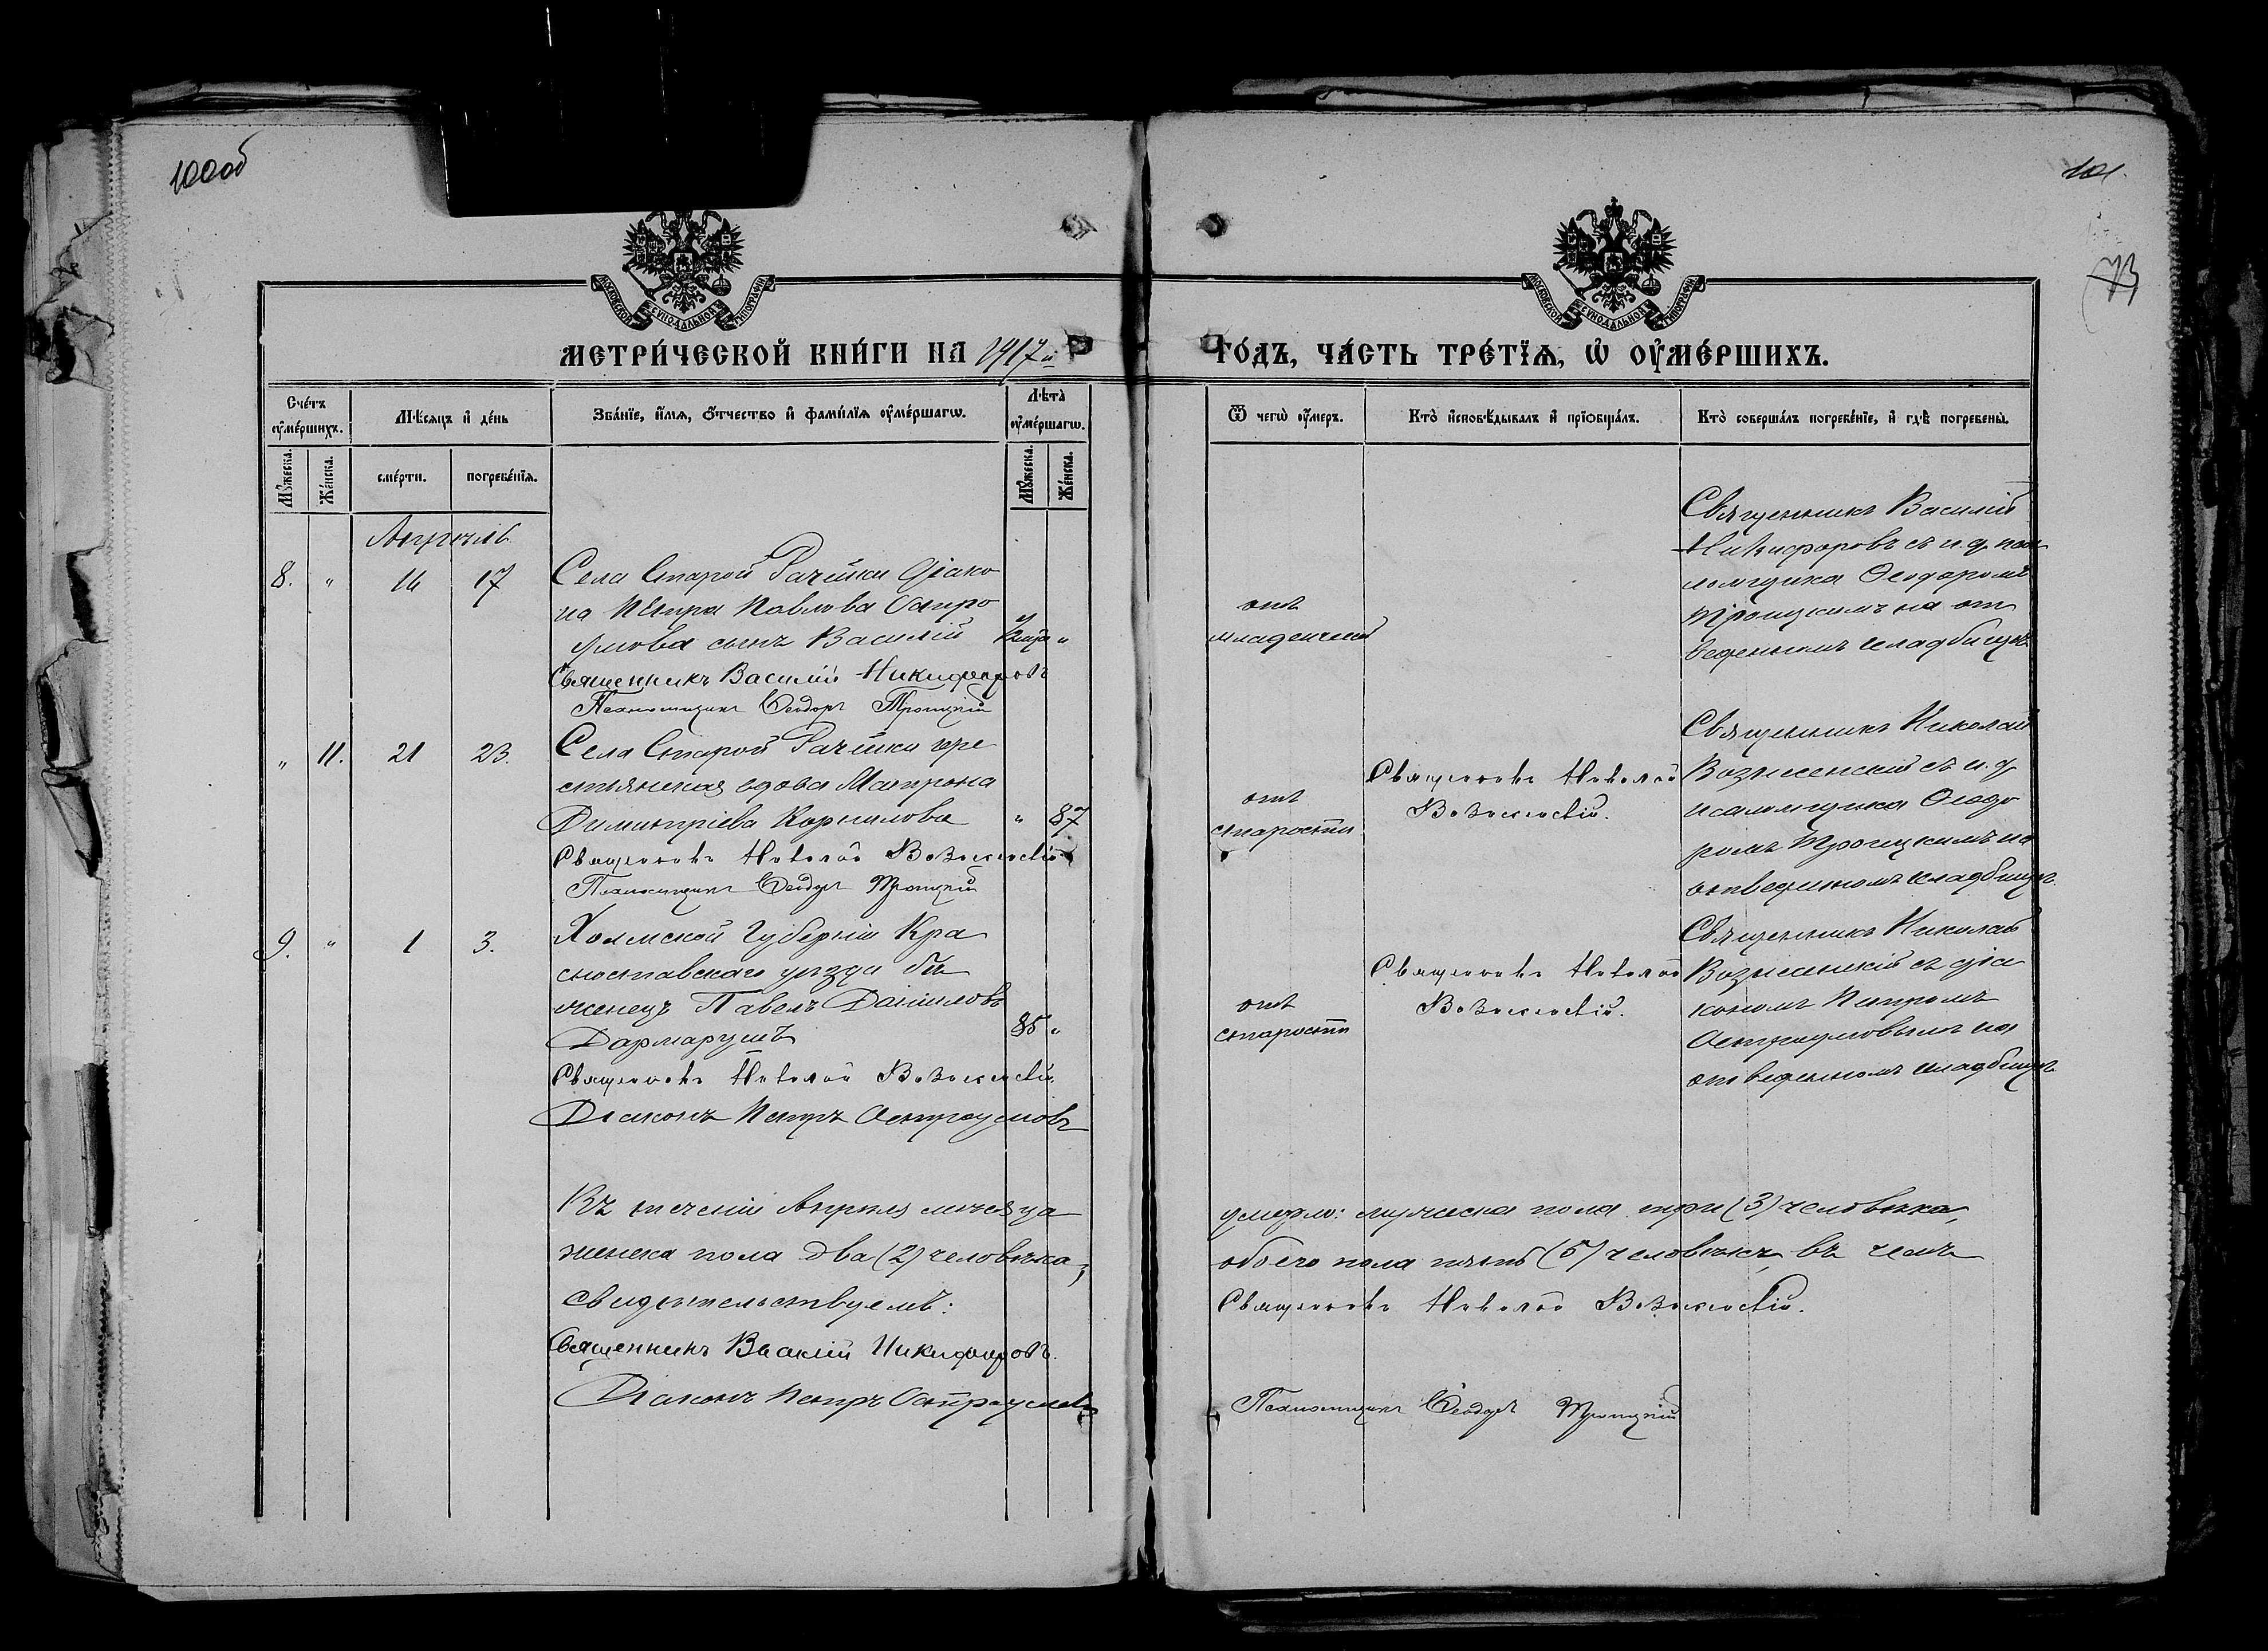 100об
101
73
МОСКОВСКОЙ СѴНОДАЛЬНОЙ ТИПОГРАФІИ
МОСКОВСКОЙ СѴНОДАЛЬНОЙ ТИПОГРАФІИ
МЕТРИ́ЧЕСКОЙ КНИ́ГИ НА 1917й
ГО́ДЪ, ЧА́СТЬ ТРЕ́ТЇѦ, Ѡ҆ ОУ҆МЕ́РШИХЪ.
Сче́тъ оу҆ме́ршихъ.
Мѣ́сяцъ и҆ де́нь
Зва́нїе, и҆́мѧ, ѻ҆́тчество и҆ фами́лїѧ оу҆ме́ршагѡ.
Лѣта̀ оу҆ме́ршагѡ.
Мꙋ́жеска.
Же́нска.
сме́рти.
погребе́нїѧ.
Мꙋ́жеска.
Же́нска.
Ѿ чегѡ̀ оу҆́меръ.
Кто̀ и҆сповѣ́дывалъ и҆ прїѻбща́лъ.
Кто̀ соверша́лъ погребе́нїе, и҆ гдѣ̀ погребены̀.
Апрѣль
8. " 16 17
Села Старой Рачейки діако
на Петра Павлова Остро
умова сынъ Василій
Священникъ Василій Никифоровъ
Псаломщикъ Ѳеодоръ Троицкій
отъ
младенческой
Священникъ Василій
Никифоровъ съ и.д. пса
ломщика Ѳеодоромъ
Троицкимъ на от
веденномъ кладбищѣ
" 11. 21 23.
Села Старой Рачейки кре
стьянская вдова Матрона
Димитріева Корнилова " 87
Священникъ Николай Вознесенскій
Псаломщикъ Ѳеодоръ Троицкій
отъ
старости
Священникъ Николай
Вознесенскій.
Священникъ Николай
Вознесенскій съ и.д.
псаломщика Ѳеодо
ромъ Троицкимъ на
отведенномъ кладбищѣ.
9. " 1 3.
Холмской Губерніи Кра
сноставскаго уѣзда бѣ
женецъ Павелъ Даниловъ
85 "
Священникъ Николай Вознесенскій.
Діаконъ Петръ Остроумовъ
отъ
старости
Священникъ Николай
Вознесенскій.
Священникъ Николай
Вознесенскій съ діа
кономъ Петромъ
Остроумовымъ на
отведенномъ кладбищѣ.
Въ теченіи Апрѣля мѣсяца
умерло: мужеска пола три (3) человѣка,
женска пола два (2) человѣка,
обоего пола пять (5) человѣкъ, въ чемъ
свидѣтельствуемъ:
Священникъ Николай Вознесенскій.
Священникъ Василій Никифоровъ.
Діаконъ Петръ Остроумовъ
Псаломщикъ Ѳеодоръ Троицкій